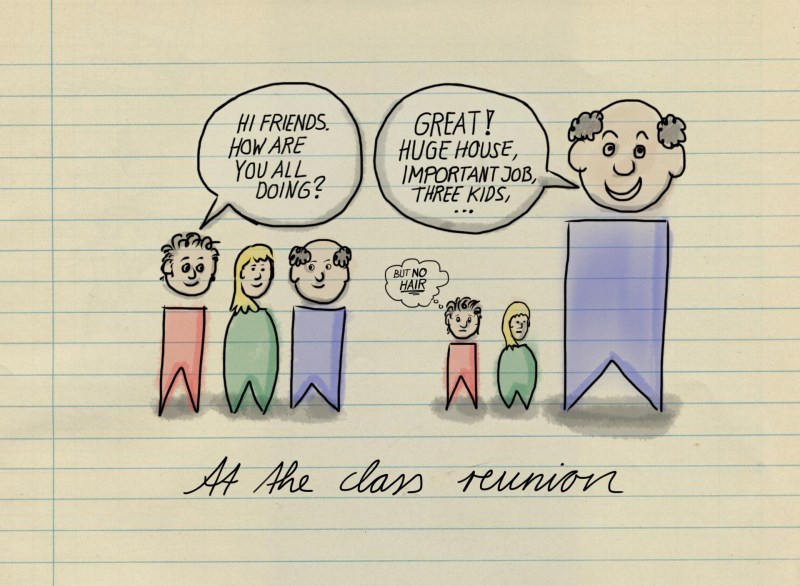 HI FRIENDS.
HOW ARE
YOU ALL
DOING?
GREAT!
HUGE HOUSE,
IMPORTANT JOB,
THREE KIDS,
...
BUT NO
HAIR
At the class reunion